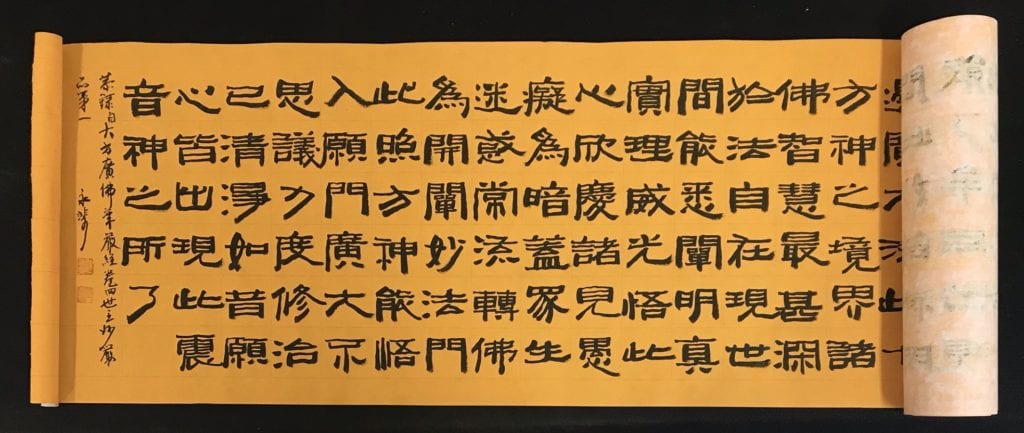 方神之境界諸
佛智慧最甚深
於法自在現世
間能悉闡明真
實理威光悟此
心欣慶諸見愚
癡為暗蓋眾生
迷惑常流轉佛
為開闡妙法門
此照方神能悟
入願門廣大不
思議力度修治
已清淨如昔願
心皆出現此震
音神之所了
恭錄自大方廣佛華嚴經卷四世主妙嚴
品第一